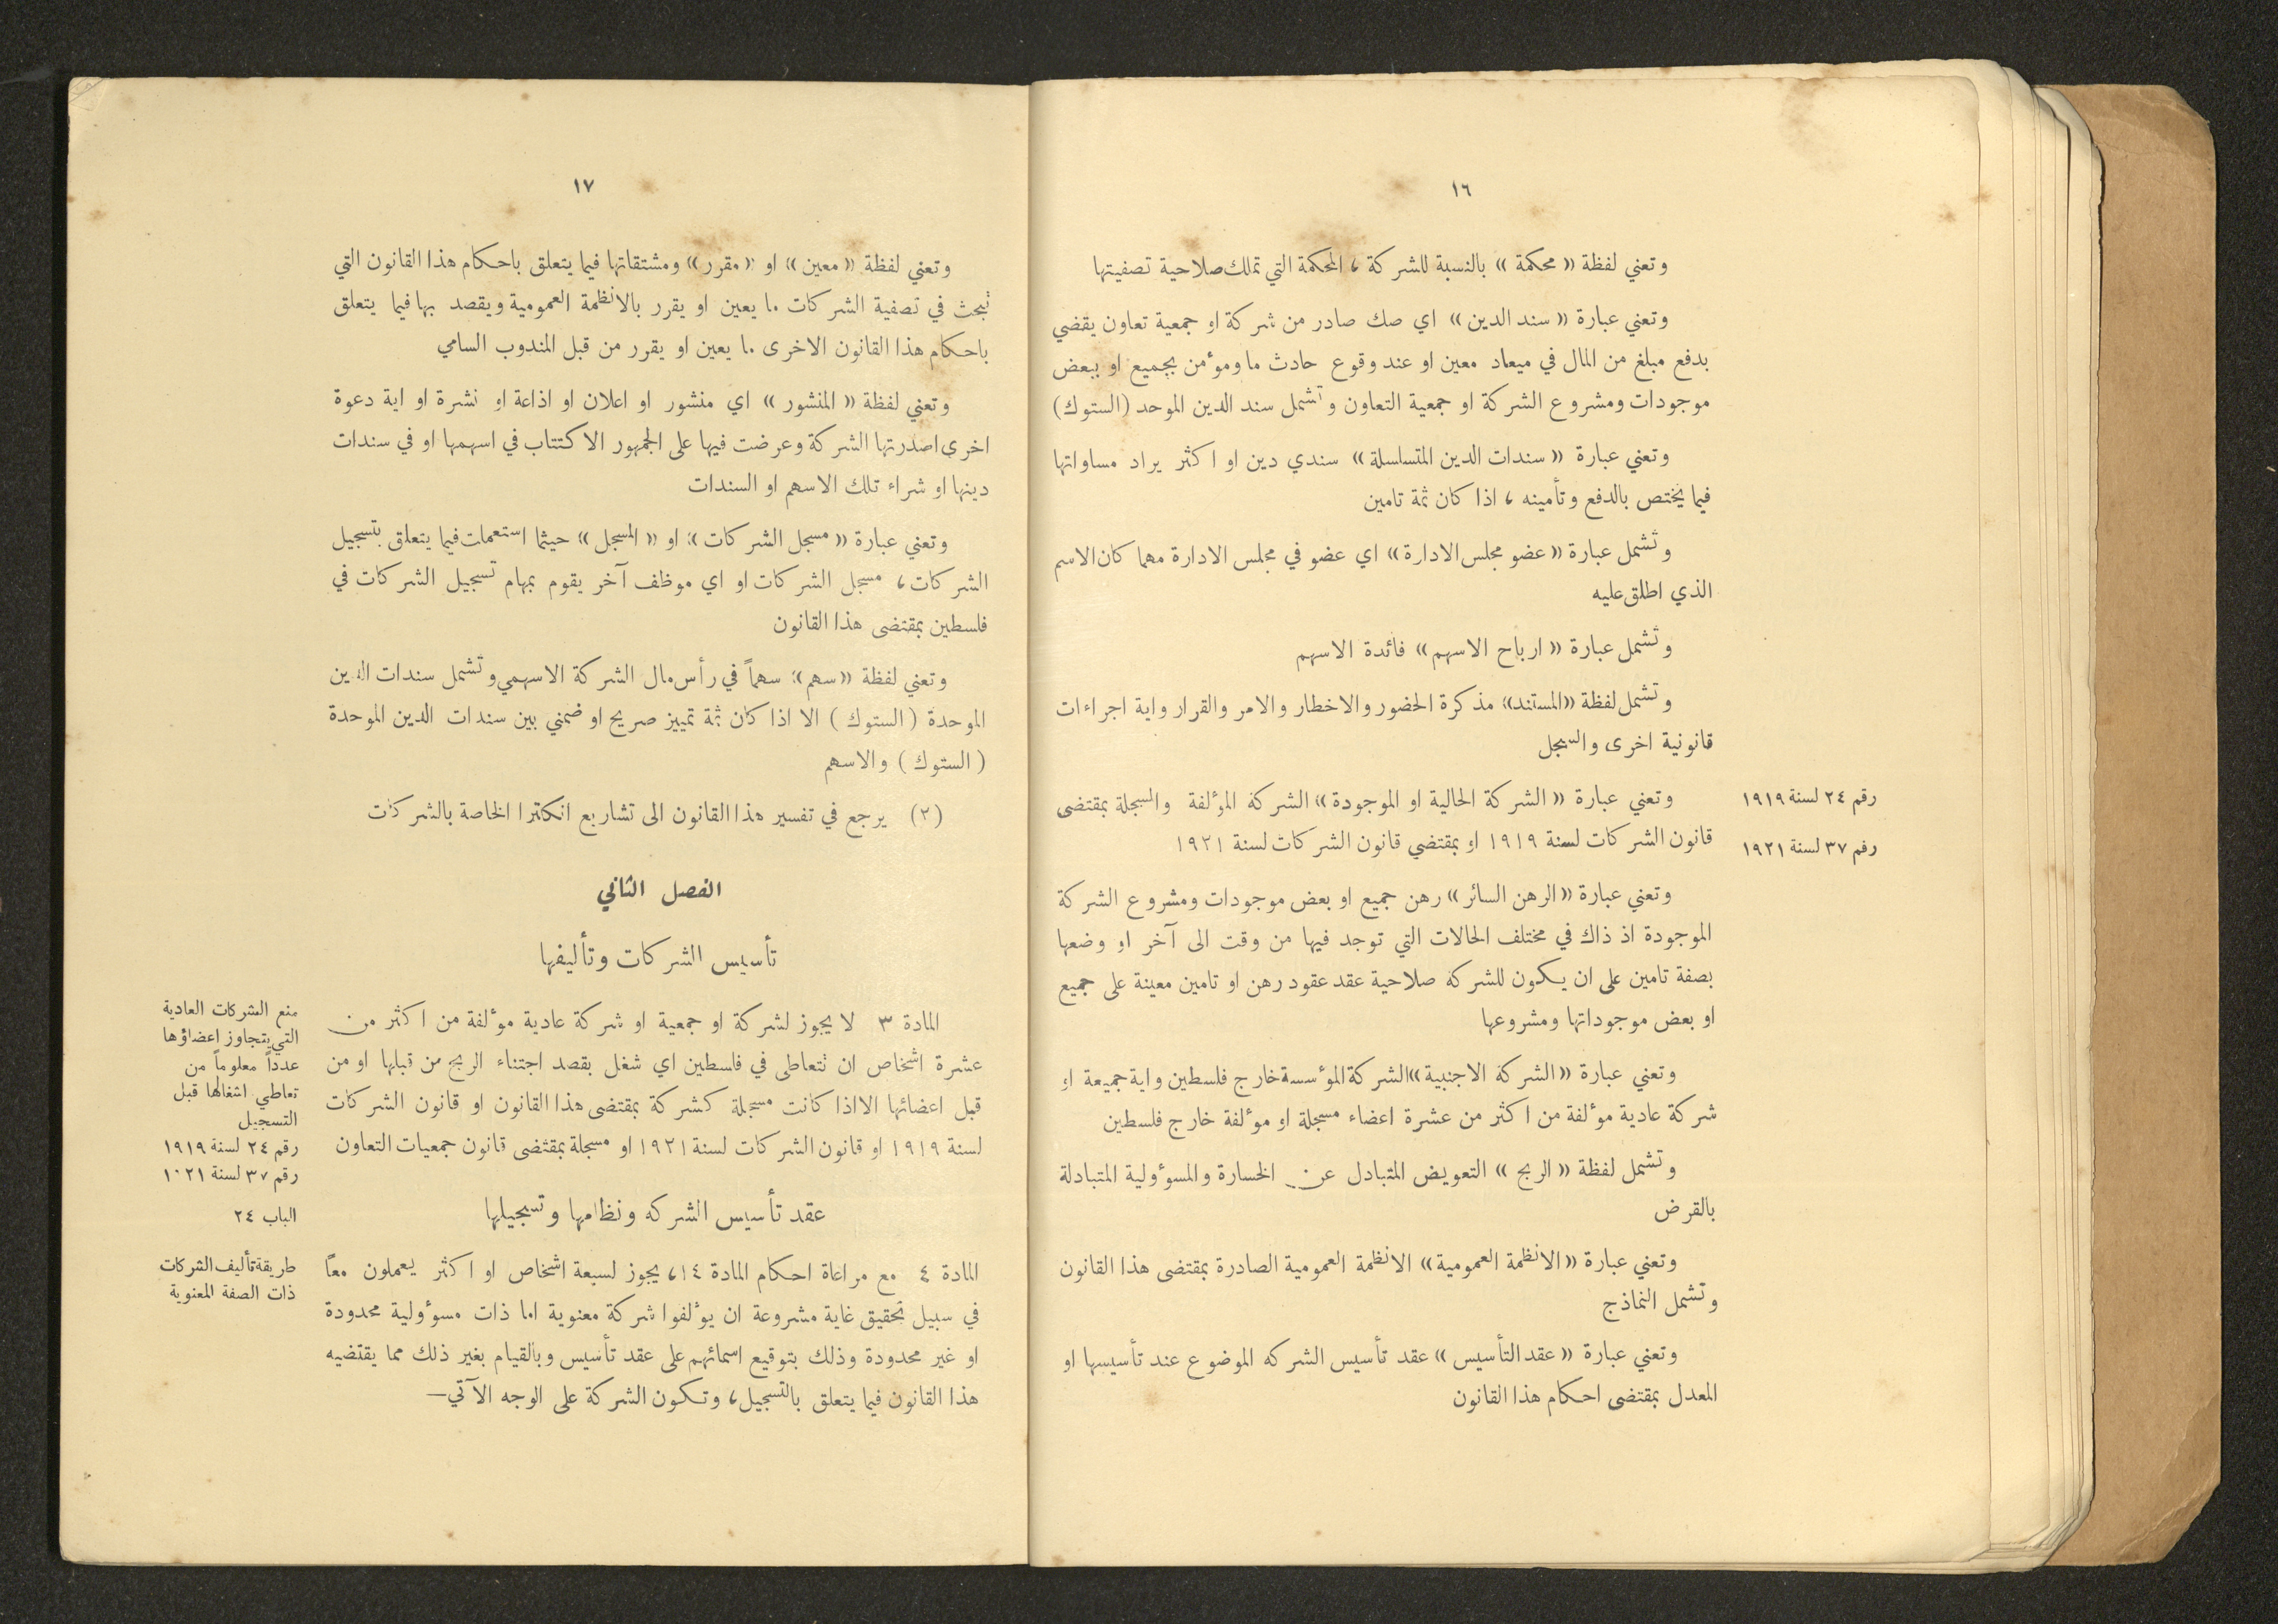 ١٦
وتعني لفظة «محكمة» بالنسبة للشركة، المحكمة التي تملك صلاحية تصفيتها
وتعني عبارة «سند الدين» اي صك صادر من شركة او جمعية تعاون يقضي
بدفع مبلغ من المال في ميعاد معين او عند وقوع حادث ما ومؤمن بجميع او ببعض
موجودات ومشروع الشركة او جمعية التعاون وتشمل سند الدين الموحد (الستوك)
وتعني عبارة «سندات الدين المتساسلة» سندي دين او اكثر يراد مساواتها
فيما يختص بالدفع وتأمينه، اذا كان ثمة تامين
وتشمل عبارة «عضو مجلس الادارة» اي عضو في مجلس الادارة مهما كان الاسم
الذي اطلق عليه
وتشمل عبارة «ارباح الاسهم» فائدة الاسهم
وتشمل لفظة «المستند» مذكرة الحضور والاخطار والامر والقرار واية اجراءات
قانونية اخرى والسجل
رقم ٢٤ لسنة ١٩١٩
وتعني عبارة «الشركة الحالية او الموجودة» الشركة المؤلفة والمسجلة بمقتضى
رقم ٣٧ لسنة ١٩٢١
قانون الشركات لسنة ١٩١٩ او بمقتضي قانون الشركات لسنة ١٩٢١
وتعني عبارة «الرهن السائر» رهن جميع او بعض موجودات ومشروع الشركة
الموجودة اذ ذاك في مختلف الحالات التي توجد فيها من وقت الى آخر او وضعها
بصفة تامين على ان يكون للشركة صلاحية عقد عقود رهن او تامين معينة على جميع
او بعض موجوداتها ومشروعها
وتعني عبارة «الشركة الاجنبية» الشركة المؤسسة خارج فلسطين واية جميعة او
شركة عادية مؤلفة من اكثر من عشرة اعضاء مسجلة او مؤلفة خارج فلسطين
وتشمل لفظة «الربح» التعويض المتبادل عن الخسارة والمسؤولية المتبادلة
بالقرض
وتعني عبارة «الانظمة العمومية» الانظمة العمومية الصادرة بمقتضى هذا القانون
وتشمل النماذج
وتعني عبارة «عقد التأسيس» عقد تأسيس الشركه الموضوع عند تأسيسها او
المعدل بمقتضى احكام هذا القانون
١٧
وتعني لفظة «معين» او «مقرر» ومشتقاتها فيما يتعلق باحكام هذا القانون التي
تبحث في تصفية الشركات ما يعين او يقرر بالانظمة العمومية ويقصد بها فيما يتعلق
باحكام هذا القانون الاخرى ما يعين او يقرر من قبل المندوب السامي
وتعني لفظة «المنشور» اي منشور او اعلان او اذاعة او نشرة او اية دعوة
اخرى اصدرتها الشركة وعرضت فيها على الجمهور الاكتتاب في اسهمها او في سندات
دينها او شراء تلك الاسهم او السندات
وتعني عبارة «مسجل الشركات» او «المسجل» حيثما استعملت فيما يتعلق بتسجيل
الشركات، مسجل الشركات او اي موظف آخر يقوم بمهام تسجيل الشركات في
فلسطين بمقتضى هذا القانون
وتعني لفظة «سهم» سهماً في رأس مال الشركة الاسهمي وتشمل سندات الدين
الموحدة (الستوك) الا اذا كان ثمة تمييز صريح او ضمني بين سندات الدين الموحدة
(الستوك) والاسهم
(٢) يرجع في تفسير هذا القانون الى تشاريع انكلترا الخاصة بالشركات
الفصل الثاني
تأسيس الشركات وتأليفها
المادة ٣ لا يجوز لشركة او جمعية او شركة عادية مؤلفة من اكثر من
عشرة اشخاص ان تتعاطى في فلسطين اي شغل بقصد اجتناء الربح من قبلها او من
قبل اعضائها الا اذا كانت مسجلة كشركة بمقتضى هذا القانون او قانون الشركات
لسنة ١٩١٩ او قانون الشركات لسنة ١٩٢١ او مسجلة بمقتضى قانون جمعيات التعاون
منع الشركات العادية
التي يتجاوز اعضاؤها
عدداً معلوماً من
تعاطي اشغالها قبل
التسجيل
رقم ٢٤ لسنة ١٩١٩
رقم ٣٧ لسنة ١٠٢١
الباب ٢٤
عقد تأسيس الشركه ونظامها وتسجيلها
المادة ٤ مع مراعاة احكام المادة ١٤، يجوز لسبعة اشخاص او اكثر يعملون معاً
في سبيل تحقيق غاية مشروعة ان يؤلفوا شركة معنوية اما ذات مسؤولية محدودة
او غير محدودة وذلك بتوقيع اسمائهم على عقد تأسيس وبالقيام بغير ذلك مما يقتضيه
هذا القانون فيما يتعلق بالتسجيل، وتكون الشركة على الوجه الآتي—
طريقة تأليف الشركات
ذات الصفة المعنوية